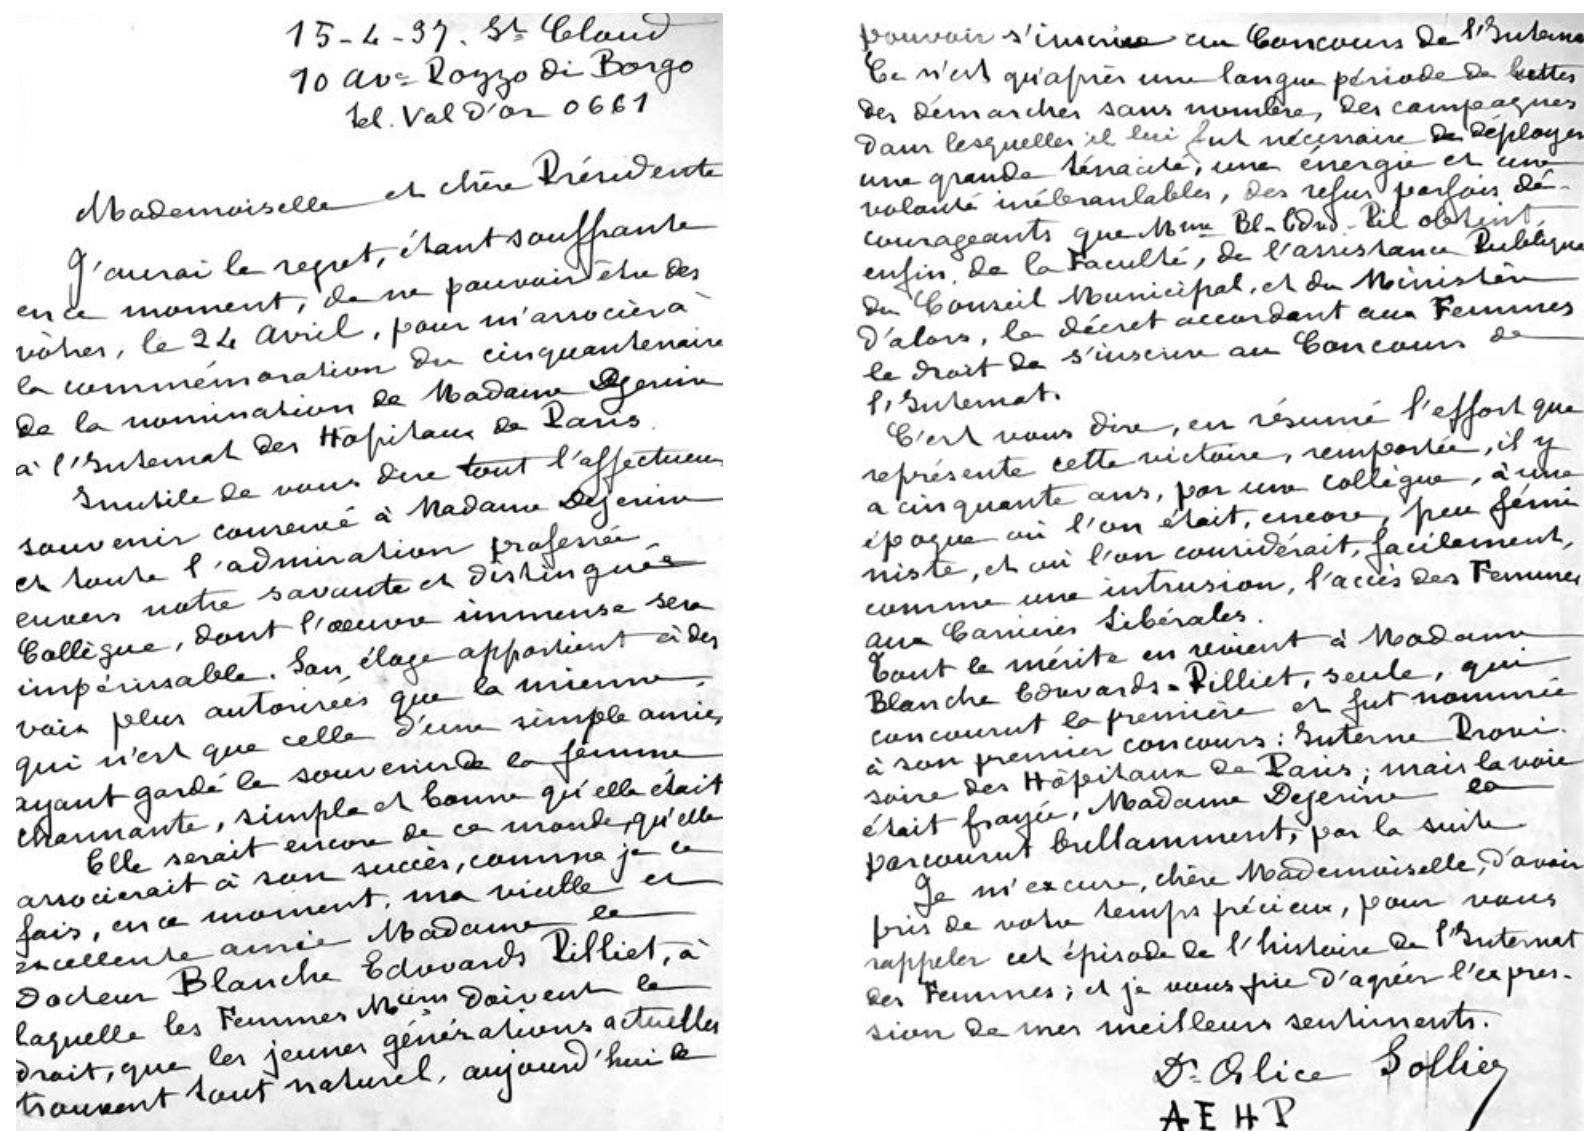 15-4-37. St Cloud
10 ave Pozzo di Borgo
tel. Val d'or 0661
Mademoiselle et chère Présidente
J'aurai le regret, étant souffrante
en ce moment, de ne pouvoir être des
vôtres, le 24 Avril, pour m'associer à
la commémoration du cinquantenaire
de la nomination de Madame Dejerine
à l'Internat des Hôpitaux de Paris.
Inutile de vous dire tout l'affectueux
souvenir conservé à Madame Dejerine
et toute l'admiration professée
envers notre savante et distinguée
Collègue, dont l'œuvre immense sera
impérissable. Son éloge appartient à des
voix plus autorisées que la mienne,
qui n'est que celle d'une simple amie,
ayant gardé le souvenir de la femme
charmante, simple et bonne qu'elle était
Elle serait encore de ce monde, qu'elle
associerait à son succès, comme je le
fais, en ce moment, ma vieille et
excellente amie Madame le
Docteur Blanche Edwards Pilliet, à
laquelle les Femmes Mcins doivent le
droit, que les jeunes générations actuelles
trouvent tout naturel, aujourd'hui de
pouvoir s'inscrire au Concours de l'Interna
Ce n'est qu'après une longue période de luttes
des démarches sans nombre, des campagnes
dans lesquelles il lui fut nécessaire de déployer
une grande ténacité, une énergie et une
volonté inébranlables, des refus parfois dé-
courageants que Mme Bl-Edwd-Pil obtient
enfin, de la Faculté, de l'assistance Publique
du Conseil Municipal, et du Ministère
d'alors, le décret accordant aux Femmes
le droit de s'inscrire au Concours de
l'Internat.
C'est vous dire, en résumé l'effort que
représente cette victoire, remportée, il y
a cinquante ans, par une collègue, à une
époque où l'on était, encore, peu fémi
niste, et où l'on considérait, facilement,
comme une intrusion, l'accès des Femmes
aux Carrières Libérales.
Tout le mérite en revient à Madame
Blanche Edwards-Pilliet, seule, qui
concourut la première et fut nommée
à son premier concours: Interne Provi.
soire des Hôpitaux de Paris; mais la voie
était frayée, Madame Dejerine la
parcourut brillamment, par la suite
Je m'excuse, chère Mademoiselle, d'avoir
pris de votre temps précieux, pour vous
rappeler cet épisode de l'histoire de l'Internat
des Femmes; et je vous prie d'agréer l'expres-
sion de mes meilleurs sentiments.
Dr Alice Sollier
A E H P